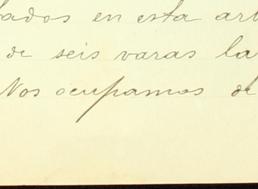 bados en esta art
de seis varas la
Nos ocupamos de